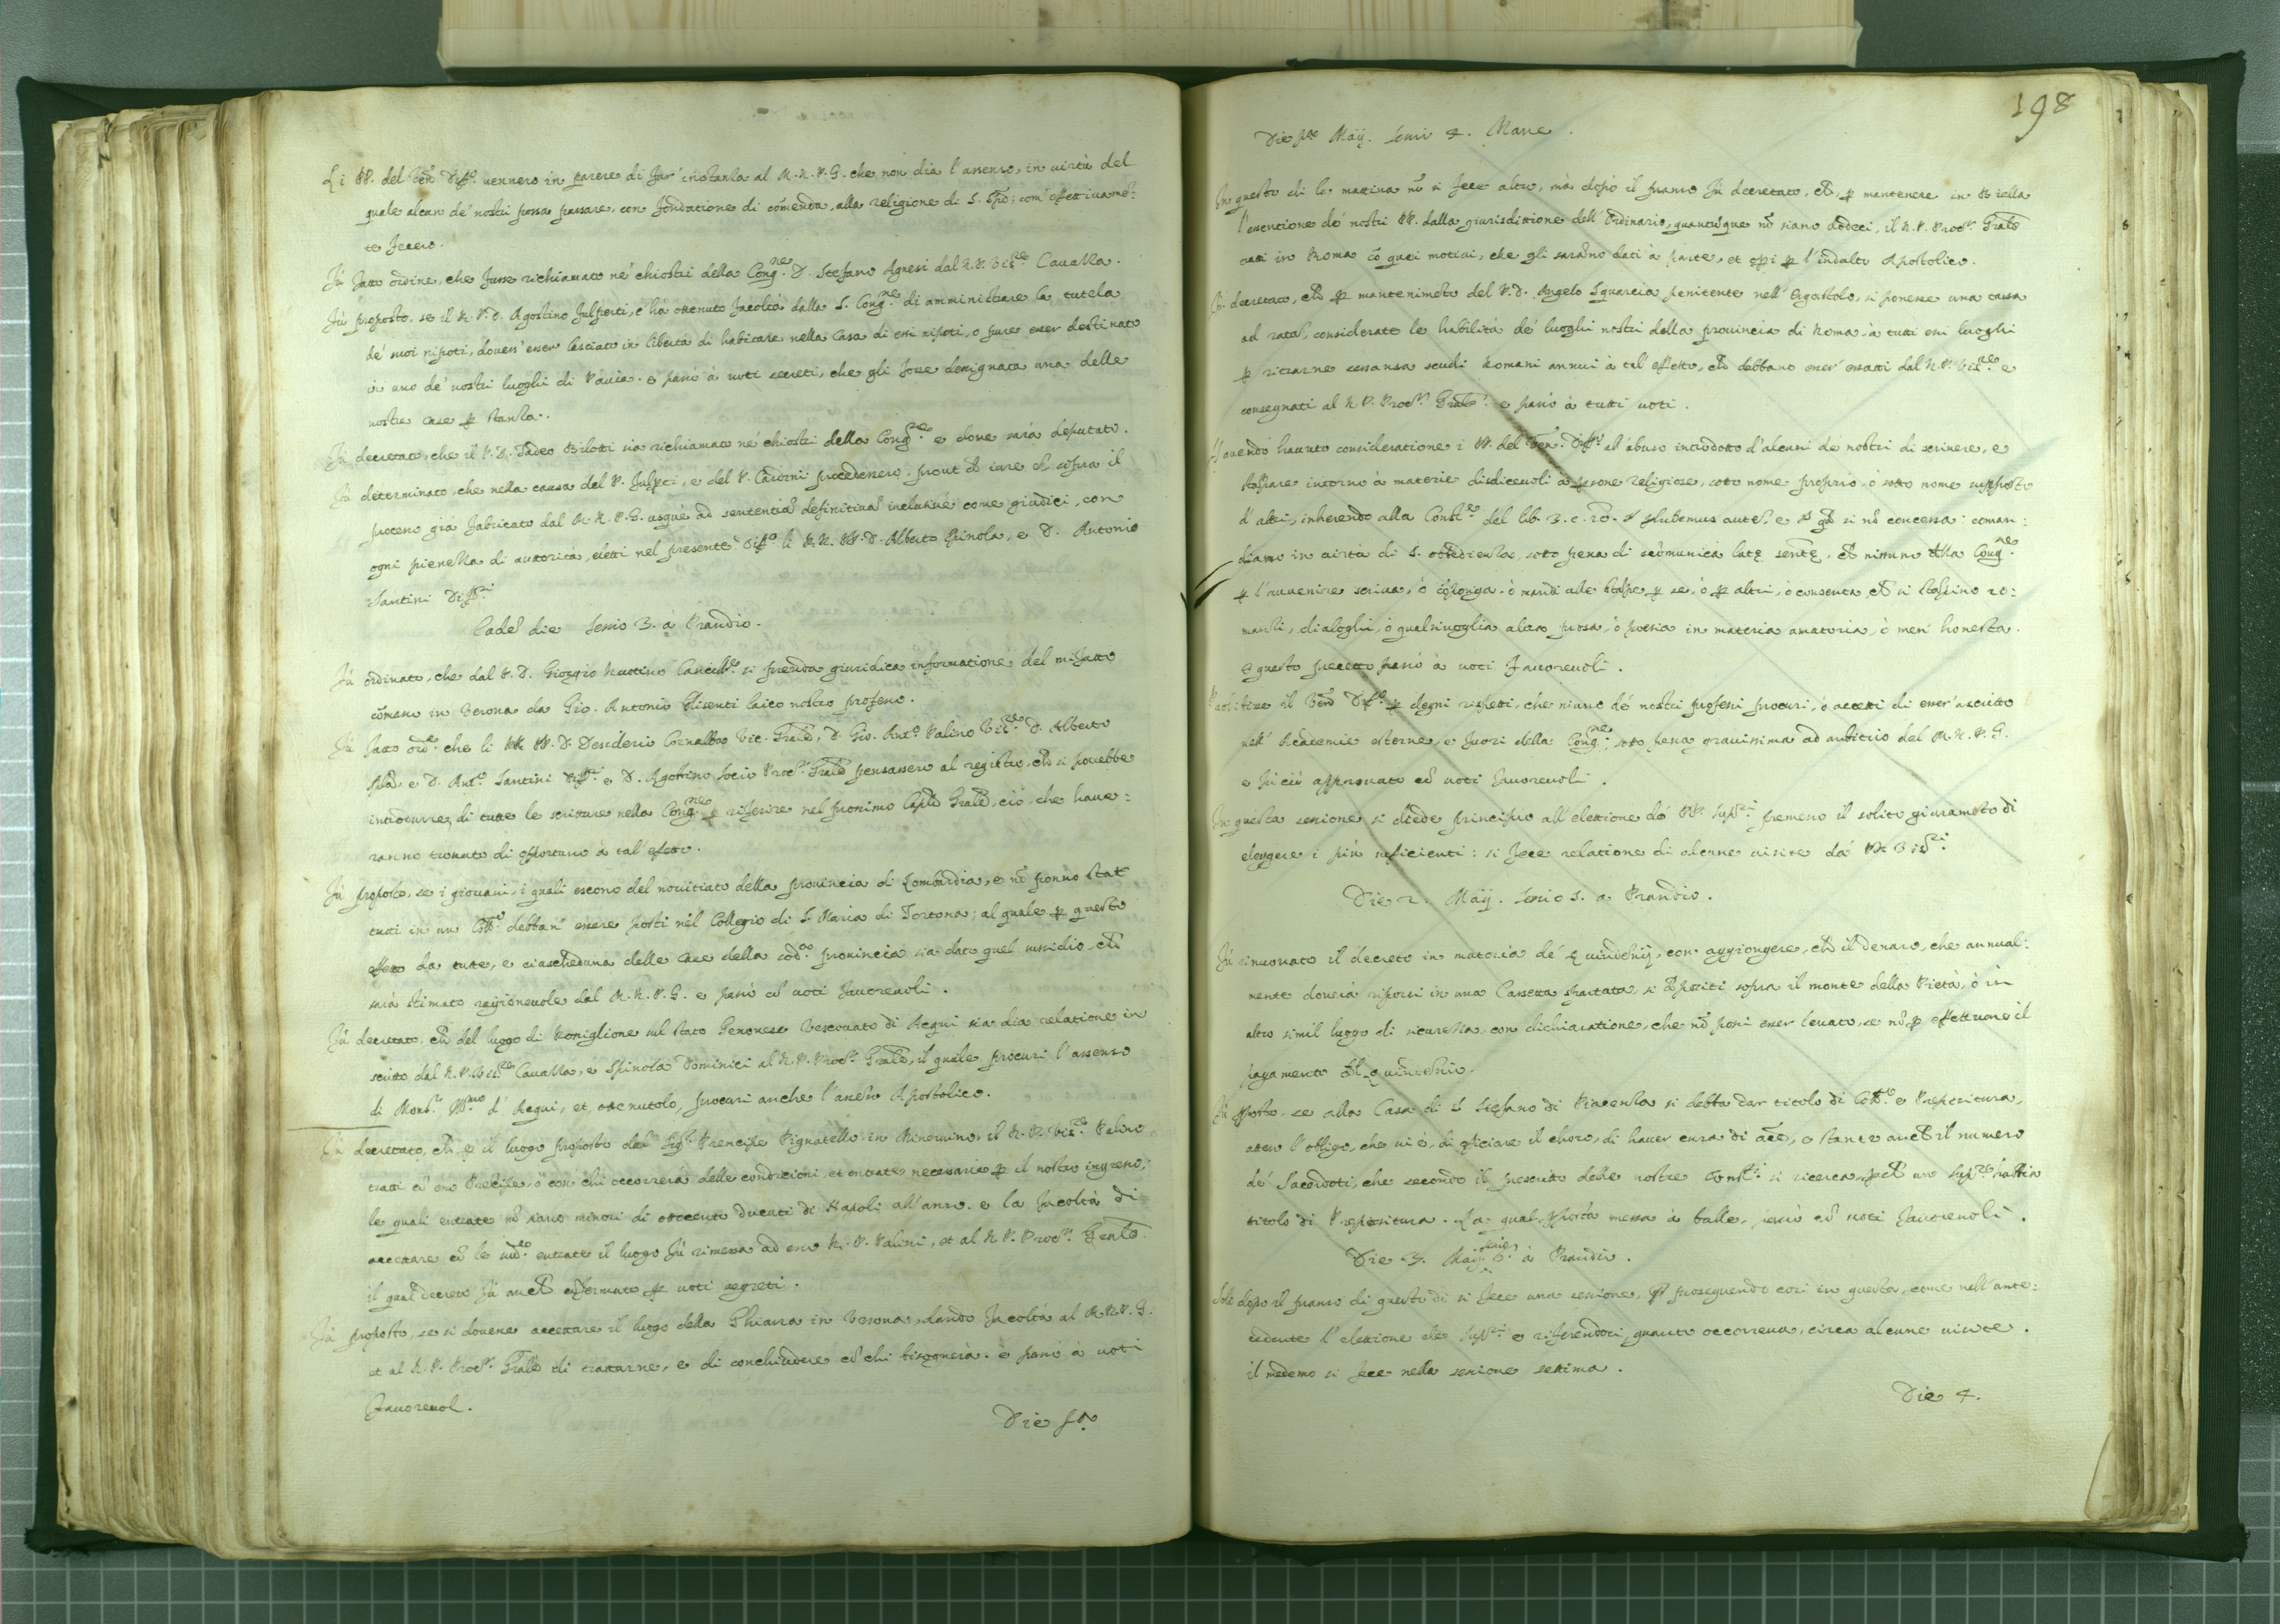 Li PP. del Ven. Diff.o vennero in parere di far' instanza al M.R.P.G. che non dia l'assenso, in virtù del
quale alcun de' nostri possa passare, con fondatione di comenda, alla religione di S. Spo; com' effettivamē:
te fecero.
Fù fatto ordine, che fusse richiamato ne' chiostri della Cong.ne D. Stefano Agresi dal R.P. Vis.re Cavazza.
Fù proposto, se il R.P.D. Agostino Fulperti, c'hà ottenuto facoltà dalla S. Cong.ne di amministrare la tutela
de' suoi nipoti, dovess' esser lasciato in libertà di habitare nella Casa di essi nipoti, o pure esser destinato
in uno de' nostri luoghi di Pavia. e passò à voti secreti, che gli fosse designata una delle
nostre case p stanza.
Fù decretato, che il P.D. Tadeo Bilotti sia richiamato ne' chiostri della Cong.ne e dove sarà deputato.
Fù determinato, che nella causa del P. Fulperti, e del P. Cardini procedessero, prout de iure sopra il
processo già fabricato dal M.R.P.G. usque ad sententiā definitivā inclusivè come giudici, con
ogni pienezza di autorità, eletti nel presente Diff.o li RR. PP. D. Alberto Spinola, e D. Antonio
Santini Diff.ri
Eadē die Sessio 3. à Prandio.
Fù ordinato, che dal P.D. Giorgio Cancell.re si prenda giuridica informatione del misfatto
cōmesso in Verona da Gio. Antonio Elisenti laico nostro professo.
Fù fatto ord.e che li RR PP. D. Desiderio Cornalba Vic. Grale, D. Gio. Ant.o Palino Vis.re D. Alberto
Spla, e D. Ant.o Santini Diff.ri e D. Agostino Socio Proc.r Grale pensassero al registro, che si potrebbe
introdurre, di tutte le scritture nella Cong.ne p riferire nel prossimo Caplo Grale, ciò che have:
ranno trovato di opportuno à tal' effetto.
Fù proposto, se i giovani, i quali escono del novitiato della provincia di Lombardia, e nō ponno star
tutti in un Coll.o debban' essere posti nel Collegio di S. Maria di Tortona; al quale p questo
effetto da tutte, e ciascheduna delle case della sod.a provincia sia dato quel sussidio, che
sarà stimato ragionevole dal M.R.P.G. e passò cō voti favorevoli.
Fù decretato, che del luogo di Rossiglione sul stato Genovese Vescovato di Acqui sia dia relatione in
scritto dal R.P. Vis.re Cavazza, e Spinola Dominici al R.P. Proc.r Grale, il quale procuri l'assenso
di Mons.r Ill.mo d'Acqui, et, ottenutolo, procuri anche l'assēso Apostolico.
Fù decretato, che p il luogo proposto dal Sig.r Prencipe Pignatello in Minervino, il R.P. Vis.re Palino
tratti cō esso Precipe, ò con chi occorrerà delle conditioni, et entrate necessarie p il nostro ingresso;
le quali entrate nō siano minori di ottocento ducati di Napoli all'anno. e la facoltà di
accettare cō le sud.e entrate il luogo fù rimessa ad esso R.P. Palini, et al R.P. Proc.r Grale.
il qual decreto fù anche cōfermato p voti segreti.
Fù proposto, se si dovesse accettare il luogo della Ghiara in Verona, dando facoltà al M.R.P.G.
et al R.P. Proc.r Grale di trattarne, e di conchiudere cō chi bisognerà. e passò à voti
favorevol.
Die p.a
198
Die p.a Maij. Sessio 4. Mane.
In questo dì la mattina nō si fece altro, mà dopò il pranso fù decretato, che, p mantenere in Biella
l'essentione de' nostri PP. dalla giurisdittione dell'Ordinario, quantūque nō siano dodeci, il R.P. Proc.r Grale
tratti in Roma cō quei motivi, che gli sarāno dati à parte, et opri p l'indulto Apostolico.
Fù decretato, che p mantenimēto del P.D. Angelo Squarcia penitente nell'Ergastolo, si ponesse una tassa
ad ratā, considerate le habilità de' luoghi nostri della provincia di Roma, à tutti essi luoghi
p ritrarne sessanta scudi Romani annui à tal' effetto, che debbano esser' essatti dal R.P. Vis.re e
consegnati al R.P. Proc.r Grale. e passò à tutti voti.
Havendo havuto consideratione i PP. del Ven. Diff.o all'abuso introdotto d'alcuni de' nostri di scrivere, e
stampare intorno à materie disdicevoli à psone religiose, sotto nome proprio, ò sotto nome supposto
d'altri, inherendo alla Const.ne del lib. 3. c. 20. § Jubemus autē, e § qd si nō concessa: coman:
diamo in virtù di S. obedienza, sotto pena di scōmunica latę sentę, che nissuno della Cong.ne
p l'avvenire scriva, ò cōponga, ò mandi alle stampe p se, ò p altri, ò consenta, che si stampino ro:
manzi, dialoghi, ò qualsivoglia altra prosa, ò poesia in materia amatoria, ò men' honesta.
e questo precetto passò à voti favorevoli.
Prohibisce il Ven. Diff.o p degni rispetti, che niuno de' nostri professi procuri, ò accetti di esser' ascritto
nell'Academie esterne, e fuori della Cong.ne, sotto pena gravissima ad arbitrio del M.R.P.G.
e fù ciò approvato cō voti favorevoli.
In questa sessione si diede principio all'elettione de' PP. Sup.ri premesso il solito giuramēto di
eleggere i più sufficienti: si fece relatione di alcune visite da' PP. Vis.ri
Die 2. Maij. Sessio 5. a Prandio.
Fù rinovato il decreto in materia de' Quindenij, con' aggiongere, che il denaro, che annual:
mente doverà riporsi in una Cassetta spartata, si depositi sopra il monte della Pietà, ò in
altro simil luogo di sicurezza, con dichiaratione, che nō possi esser levato, se nō p effettuare il
pagamento del Quindenio.
Fù pposto, se alla Casa di S. Stefano di Piacenza si debba dar titolo di Coll.o e Prepositura,
atteso l'obligo, che vi è, di officiare il choro, di haver cura di aīe, e stante anche il numero
de' Sacerdoti, che secondo il prescritto delle nostre Const.ni si ricerca, pche un Sup.re habbia
titolo di Prepositura. La qual pposta messa à balle, passò cō voti favorevoli.
Die 3. Maij. Sessio 6. à Prandio.
Solo dopo il pranso di questo dì si fece una sessione, proseguendo così in questa, come nell'ante:
cedente l'elettione de Sup.ri e riferendosi, quanto occorreva, circa alcune visite.
il medemo si fece nella sessione settima.
Die 4.